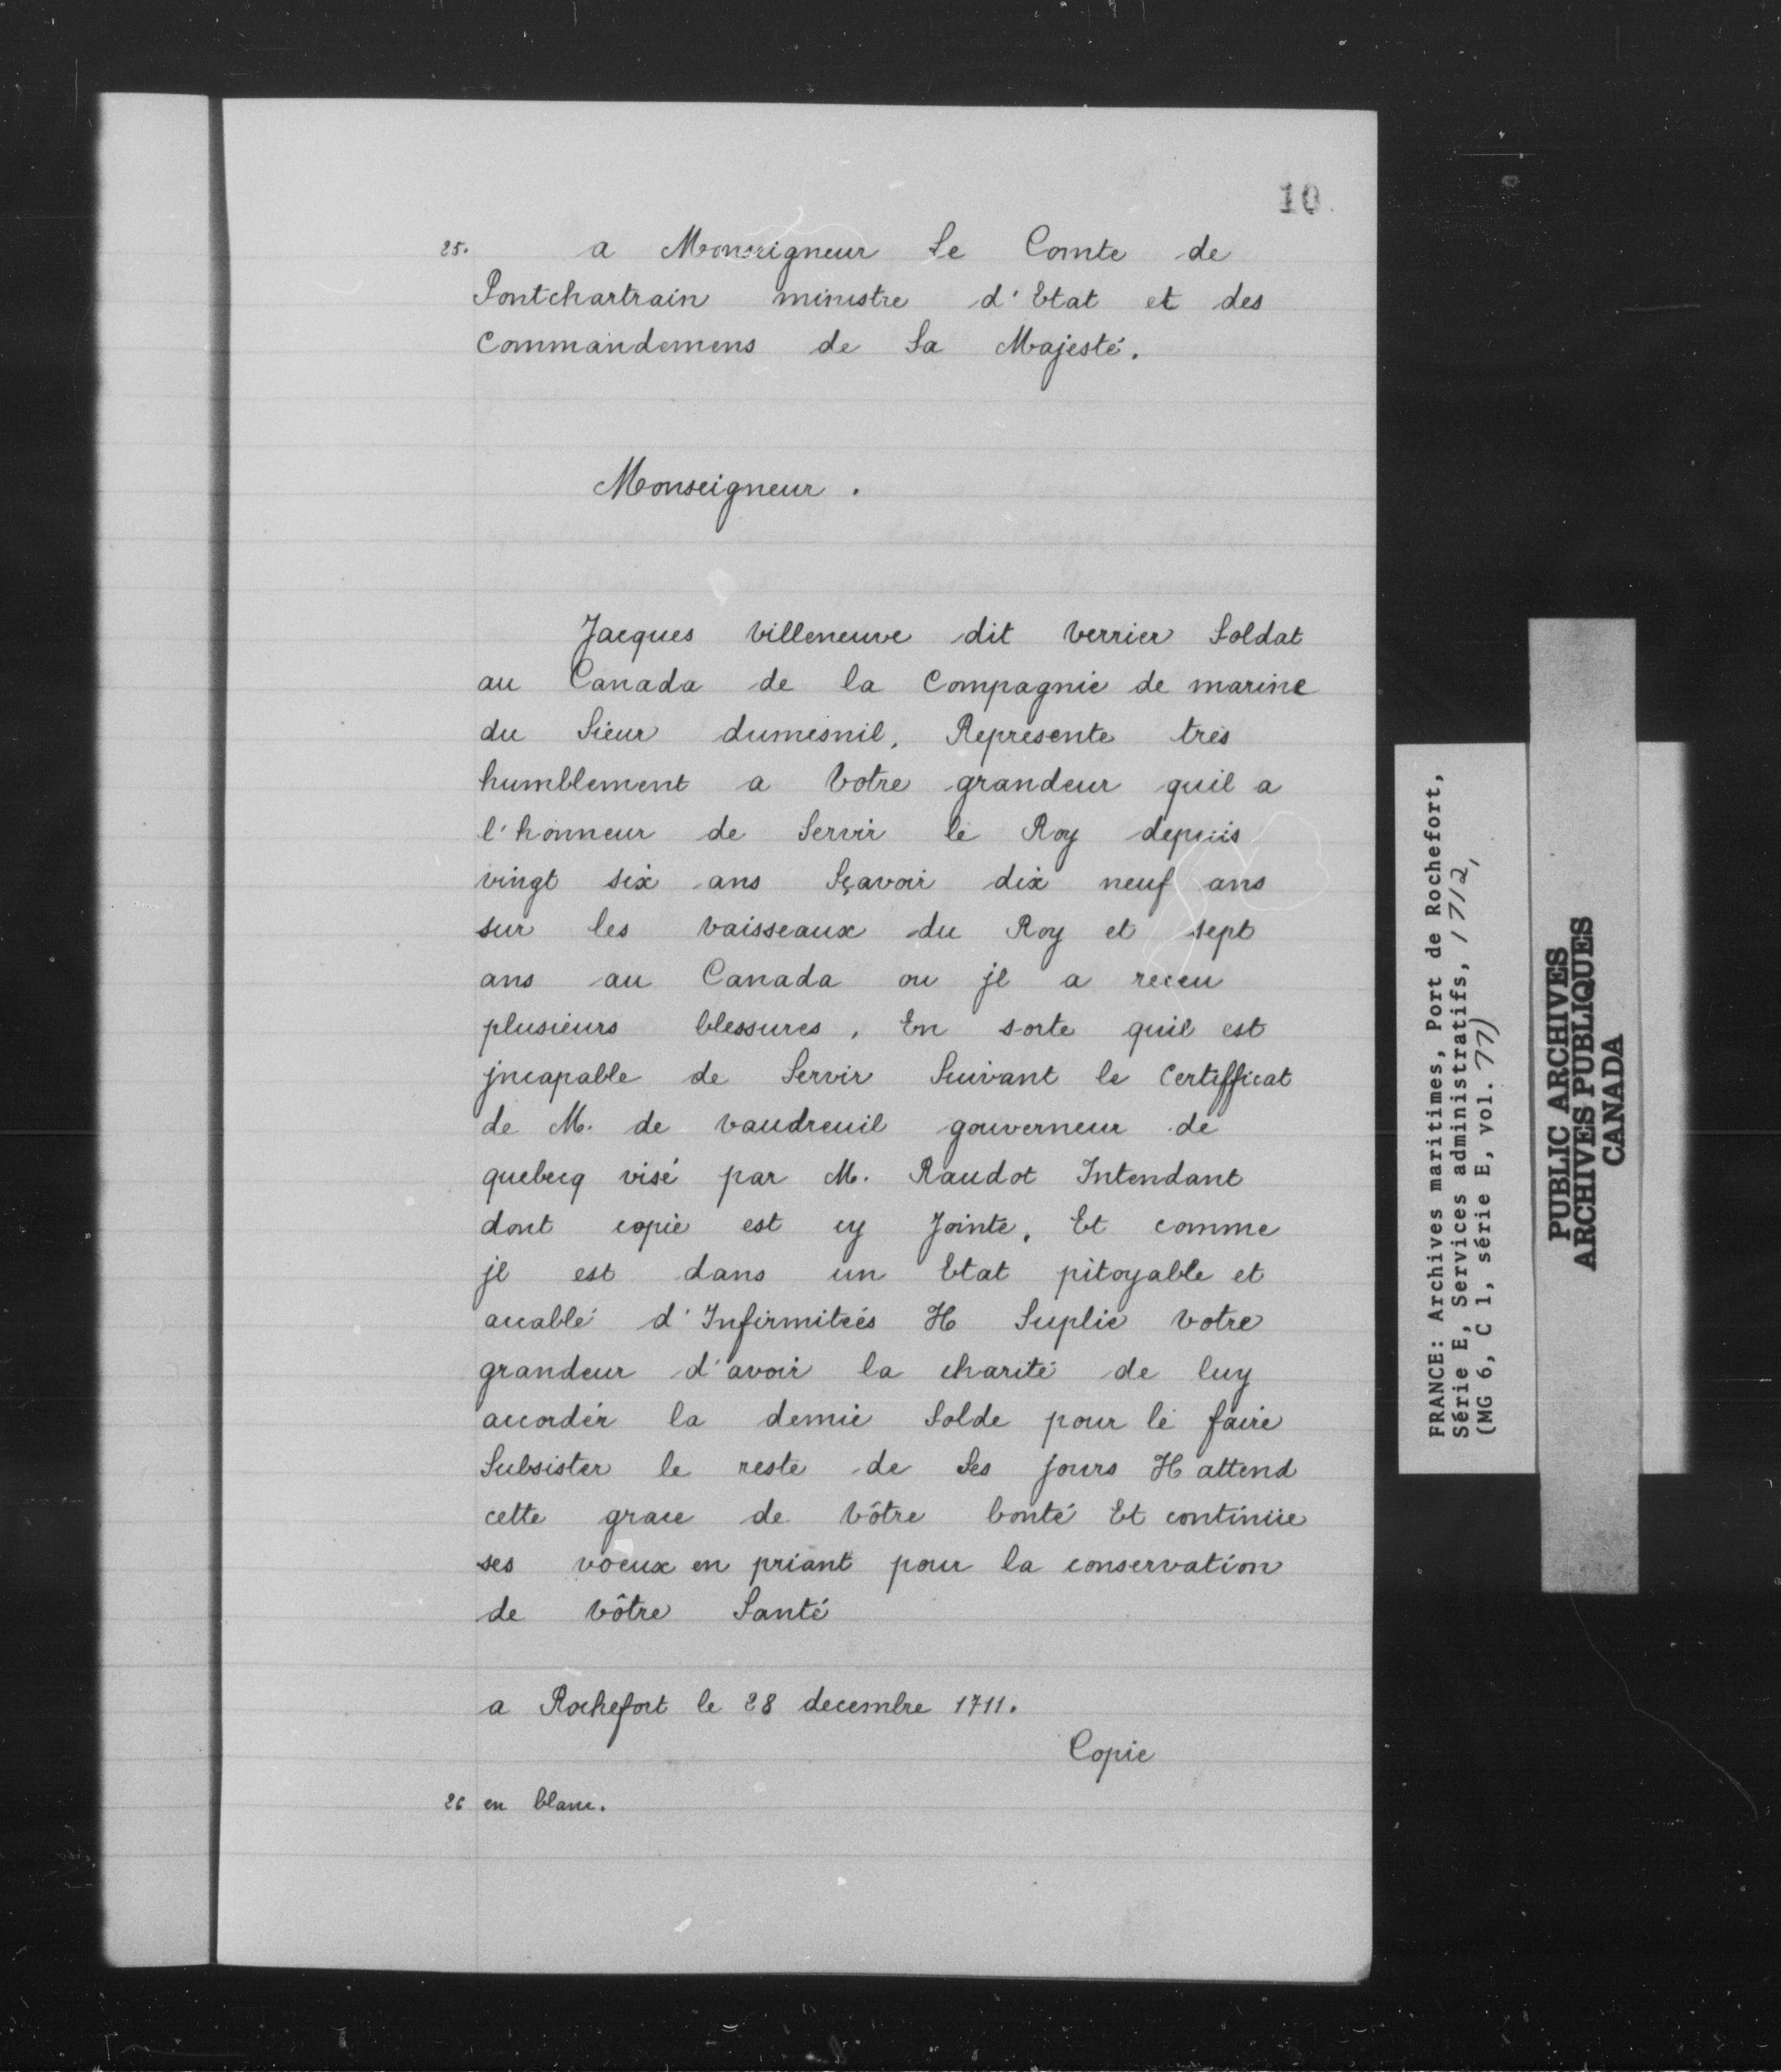 10.
25. a Monseigneur Le Comte de
Pontchartrain ministre d'Etat et des
Commandemens de Sa Majesté.
Monseigneur.
Jacques Villeneuve dit Verrier Soldat
au Canada de la Compagnie de marine
du Sieur dumesnil, Represente très
humblement a Votre grandeur quil a
l'honneur de Servir le Roy depuis
vingt six ans Sçavoir dix neuf ans
sur les Vaisseaux du Roy et sept
ans au Canada ou jl a receu
plusieurs blessures, En sorte quil est
jncapable de Servir Suivant le Certifficat
de M. de Vaudreuil gouverneur de
quebecq visé par M. Raudot Intendant
dont copie est cy Jointe, Et comme
jl est dans un Etat pitoyable et
accablé d'Infirmitéés Il Suplie Votre
grandeur d'avoir la charité de luy
accordér la demie Solde pour lé faire
Subsister le reste de Ses jours Il attend
cette grace de Vôtre bonté Et continüe
ses voeux en priant pour la conservation
de Vôtre Santé
a Rochefort le 28 decembre 1711.
Copie
26 en blanc.
FRANCE: Archives maritimes, Port de Rochefort,
Série E, Services administratifs, 1712,
(MG 6, C 1, série E, vol. 77)
PUBLIC ARCHIVES
ARCHIVES PUBLIQUES
CANADA